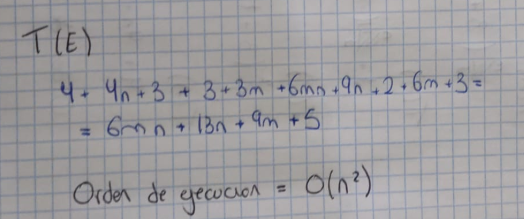 T(E)
4 + 4n + 3 + 3 + 3m + 6mn + 9n + 2 + 6m + 3 =
= 6mn + 13n + 9m + 5
Orden de ejecucion = O(n²)